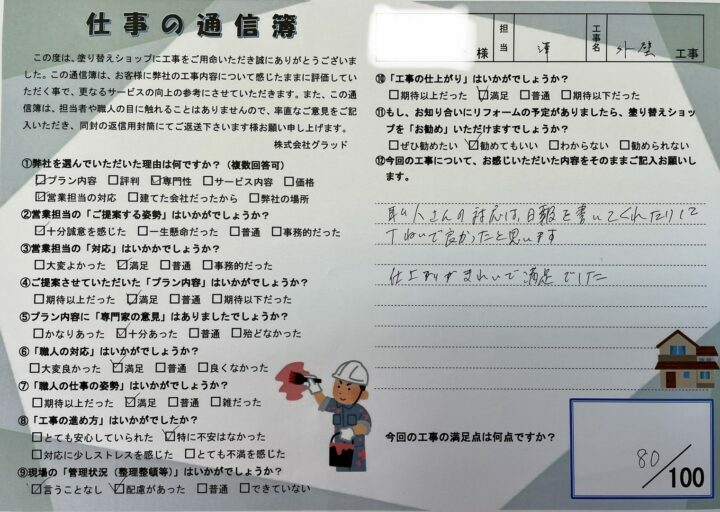 仕事の通信簿
この度は、塗り替えショップに工事をご用命いただき誠にありがとうございま
した。この通信簿は、お客様に弊社の工事内容について感じたままに評価してい
ただく事で、更なるサービスの向上の参考にさせていただきます。また、この通
信簿は、担当者や職人の目に触れることはありませんので、率直なご意見をご記
入いただき、同封の返信用封筒にてご返送下さいます様お願い申し上げます。
株式会社グラッド
①弊社を選んでいただいた理由は何ですか？（複数回答可）
☑プラン内容 □評判 ☑専門性 □サービス内容 □価格
☑営業担当の対応 □建てた会社だったから □弊社の場所
②営業担当の「ご提案する姿勢」はいかがでしょうか？
☑十分誠意を感じた □一生懸命だった □普通 □事務的だった
③営業担当の「対応」はいかかでしょうか？
□大変よかった ☑満足 □普通 □事務的だった
④ご提案させていただいた「プラン内容」はいかがでしょうか？
□期待以上だった ☑満足 □普通 □期待以下だった
⑤プラン内容に「専門家の意見」はありましたでしょうか？
□かなりあった ☑十分あった □普通 □殆どなかった
⑥「職人の対応」はいかがでしょうか？
□大変良かった ☑満足 □普通 □良くなかった
⑦「職人の仕事の姿勢」はいかがでしょうか？
□期待以上だった ☑満足 □普通 □雑だった
⑧「工事の進め方」はいかがでしたか？
□とても安心していられた ☑特に不安はなかった
□対応に少しストレスを感じた □とても不満を感じた
⑨現場の「管理状況（整理整頓等）」はいかがでしょうか？
☑言うことなし ☑配慮があった □普通 □できていない
様 担当 澤 工事名 外壁 工事
⑩「工事の仕上がり」はいかがでしょうか？
□期待以上だった ☑満足 □普通 □期待以下だった
⑪もし、お知り合いにリフォームの予定がありましたら、塗り替えショッ
プを「お勧め」いただけますでしょうか？
□ぜひ勧めたい ☑勧めてもいい □わからない □勧められない
⑫今回の工事について、お感じいただいた内容をそのままご記入お願いし
ます。
職人さんの対応は、日報を書いてくれたりして
てねいで良かったと思います
仕上がりがきれいで満足でした
今回の工事の満足点は何点ですか？
80/100